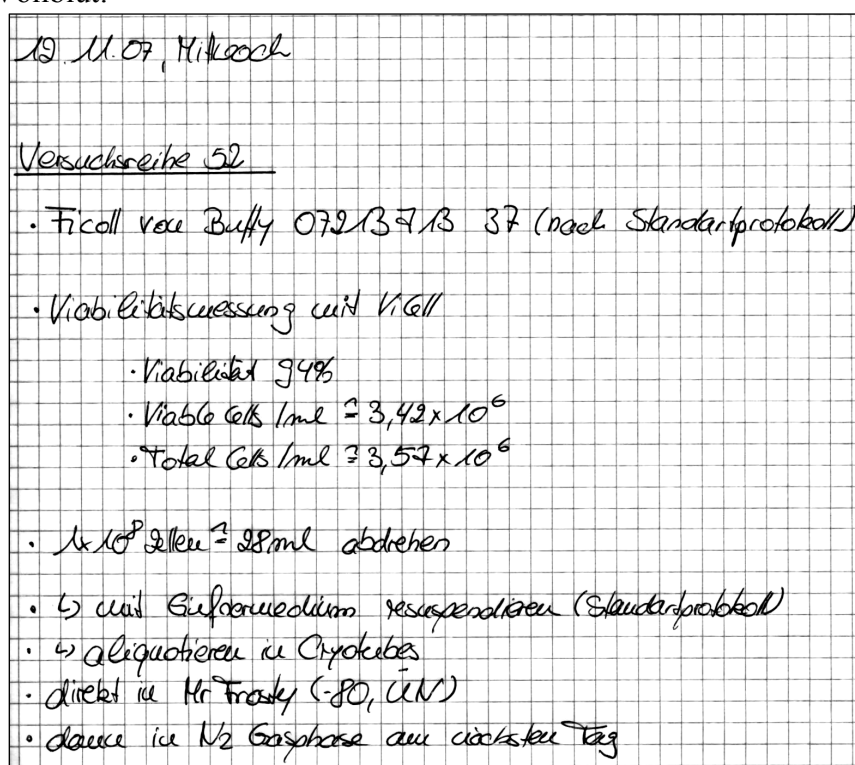 Vollblut.
12.11.07, Mittwoch
Versuchsreihe 52
· Ficoll von Buffy 07213713 37 (nach Standartprotokoll)
· Viabilitätsmessung mit ViCell
· Viabilität 94%
· Viable Cells /ml ≙ 3,42 x 10⁶
· Total Cells /ml ≙ 3,57 x 10⁶
· 1x10⁸ Zellen ≙ 28ml abdrehen
· ↳ mit Einfriermedium resuspendieren (Standartprotokoll)
· ↳ aliquotieren in Cryotubes
· direkt in Mr Frosty (-80, ÜN)
· dann in N2 Gasphase am nächsten Tag